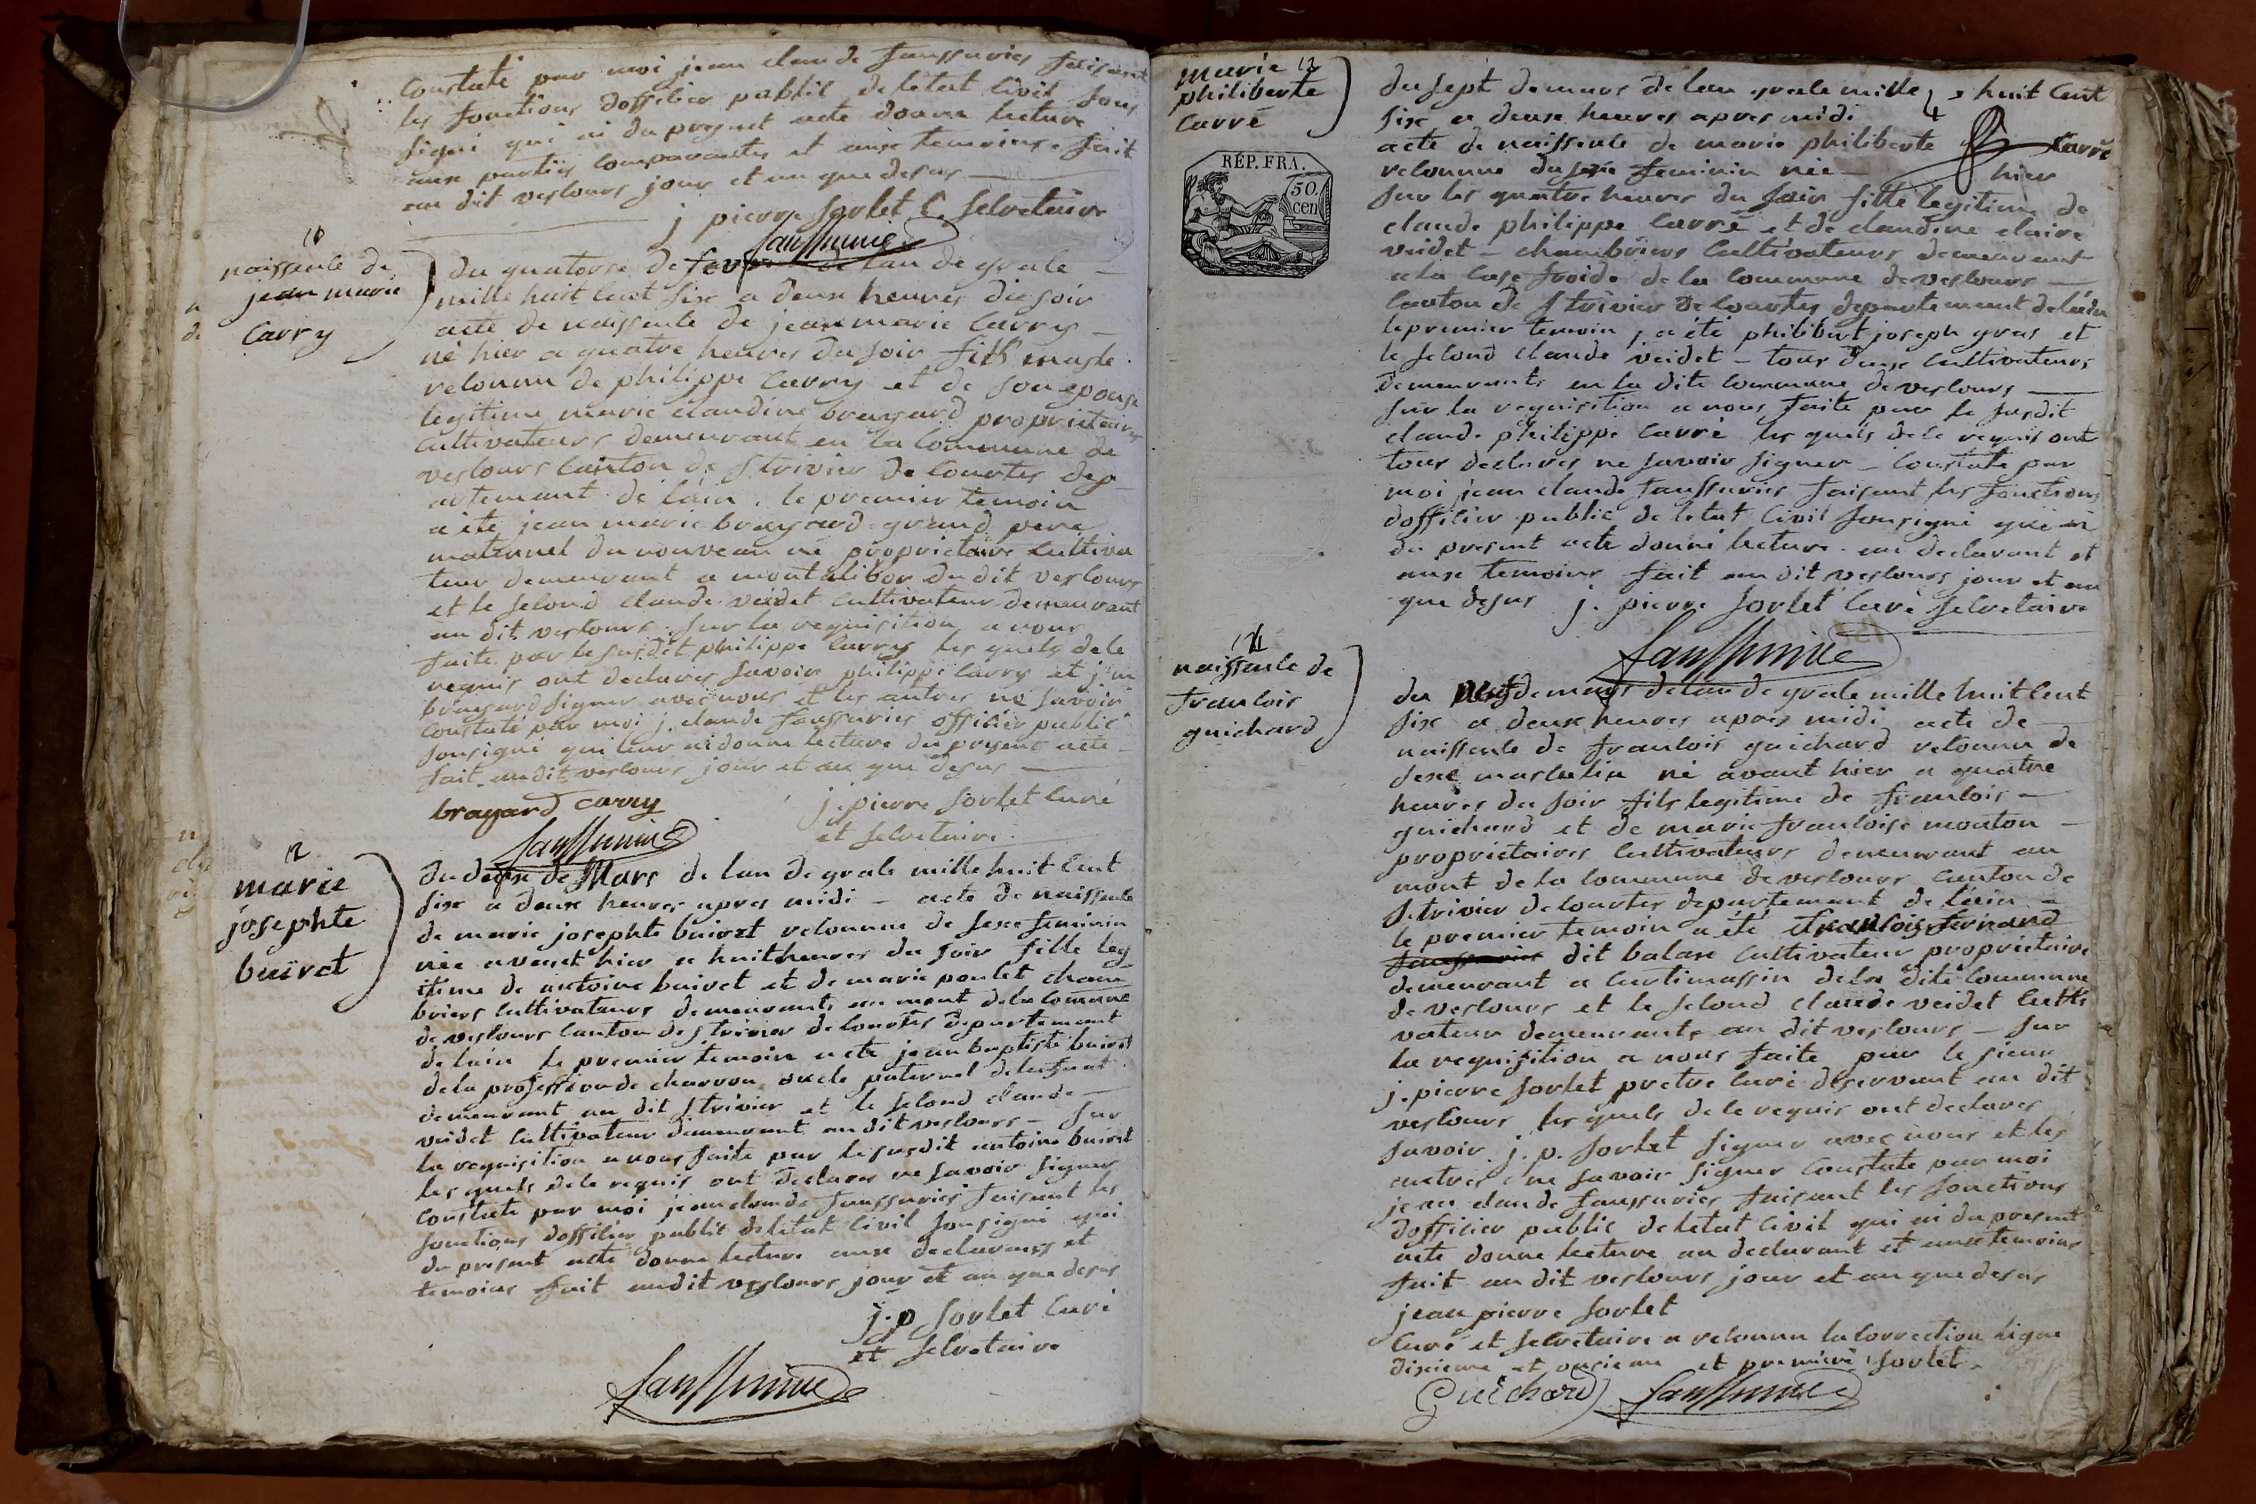 constaté par moi jean claude faussurier faisant
les fonctions dofficier public de letat civil sous
signé qui ai du present acte donné lecture
aux parties comparantes et aux temoins. fait
au dit vescours jour et an que desus
j pierre sorlet C. secretaire
naissance de
jean marie
Carry
du quatorse de lan de grace
mille huit cent six a deux heures du soir
acte de naissance de jean marie Carry
né hier a quatre heures du soir fils masle
reconnu de philippe Carry et de son epouse
legitime marie claudine brayard proprietaires
cultivateurs demeurant en la commune de
vescours canton de st trivier de courtes dep
artemant de lain. le premier temoin
a été jean marie brayard grand pere
maternel du nouveau né proprietaire cultiva
teur demeurant a du dit vescours
et le second claude veidet cultivateur demeurant
au dit vescours. sur la requisition a nous
faite par le susdit philippe Carry les quels de ce
requis ont declarés savoir philippe Carry et j m
brayard signer avec nous et les autres ne savoir
constaté par moi j. claude faussurier officier public
sousigné qui leur ai donné lecture du present acte
fait audit vescours jour et an que desus
brayard carry
j. pierre sorlet curé
et secretaire
12
marie
josephte
buiret
du deux de Mars de lan de grace mille huit cent
six a deux heures apres midi – acte de naissance
de marie josephte buiret reconnue de sexe feminin
née avant hier a huit heures du soir fille leg
itime de antoine buiret et de marie poulet cham
briers cultivateurs demeurants au mont de la commune
de vescours canton de st trivier de courtes departemant
de lain le premier temoin a été jean baptiste buiret
de la profession de charron oncle paternel de lenfant
demeurant au dit st trivier et le second claude
veidet cultivateur demeurant au dit vescours – sur
la requisition a nous faite par le susdit antoine buiret
les quels de ce requis ont declarés ne savoir signer
constaté par moi jean claude faussurier faisant les
fonctions dofficier public de letat civil sousigné qui
du present acte donné lecture aux declarants et
temoins fait audit vescours jour et an que desus
j. p sorlet curé
et secretaire
marie
philiberte
Carré
RÉP. FRA.
50.
cen
du sept de mars de lan grace mille huit cent
six a deux heures apres midi
acte de naissance de marie philiberte Carré
reconnue du sexe feminin née hier
sur les quatre heures du soir fille legitime de
claude philippe Carré et de claudine claire
veidet – chambriers cultivateurs demeurant
a la case froide de la commune de vescours
canton de st trivier de courtes departemant de lain
le premier temoin j a été philibert joseph gras et
le second claude veidet – tous deux cultivateurs
demeurants en la dite commune de vescours
sur la requisition a nous faite par le susdit
claude philippe Carré les quels de ce requis ont
tous declarés ne savoir signer – constaté par
moi jean claude faussurier faisant les fonctions
dofficier public de letat civil sousigné qui ai
du present acte donné lecture au declarant et
aux temoins fait au dit vescours jour et an
que desus j. pierre sorlet curé secretaire
naissance de
francois
guichard
du de mars de lan de grace mille huit cent
six a deux heures apres midi acte de
naissance de francois guichard reconnu de
sexe masculin né avant hier a quatre
heures du soir fils legitime de francois
guichard et de marie francoise monton
proprietaires cultivateurs demeurant au
mont de la commune de vescours canton de
st trivier de courtes departemant de lain
le premier temoin a été francois fernand
dit balan cultivateur proprietaire
demeurant a curtimassin de la dite commune
de vescours et le second claude veidet culti
vateur demeurants au dit vescours – sur
la requisition a nous faite par le sieur
j. pierre sorlet pretre curé deservant au dit
vescours les quels de ce requis ont declarés
savoir j. p. sorlet signer avec nous et les
autres ne savoir signer constaté par moi
jean claude faussurier faisant les fonctions
dofficier public de letat civil qui ai du present
acte donné lecture au declarant et aux temoins
fait au dit vescours jour et an que desus
jean pierre sorlet
curé et secretaire a reconnu la correction ligne
dixieme et onzieme et premiere sorlet.
Guichard